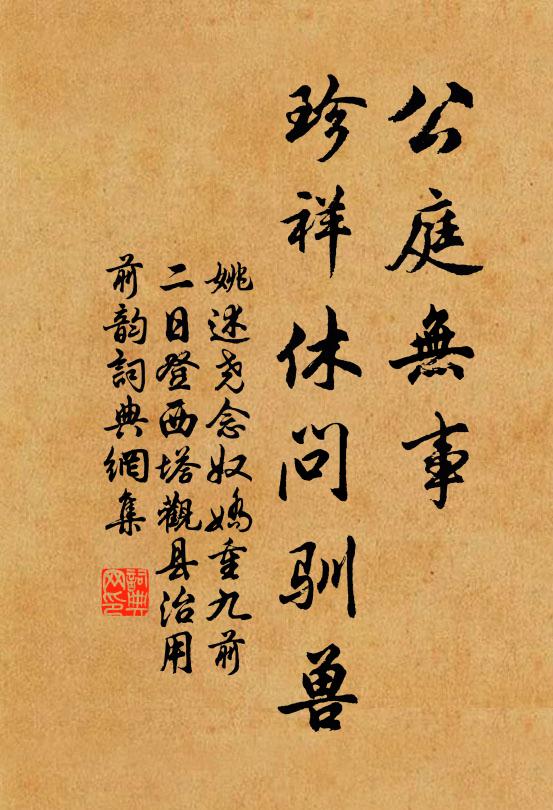 公庭無事
珍祥休问驯兽
姚述尧念奴嬌重九前
二日登西塔觀县治用
前韵詞典網集
詞典
网印